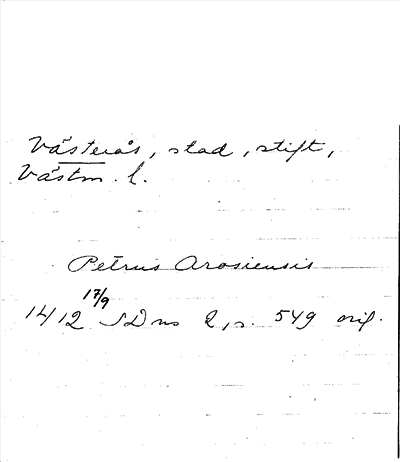 Västerås, stad, stift,
Västm. l.
Petrus Arosiensis
17/9
1412 SDns 2, s. 549 orig.